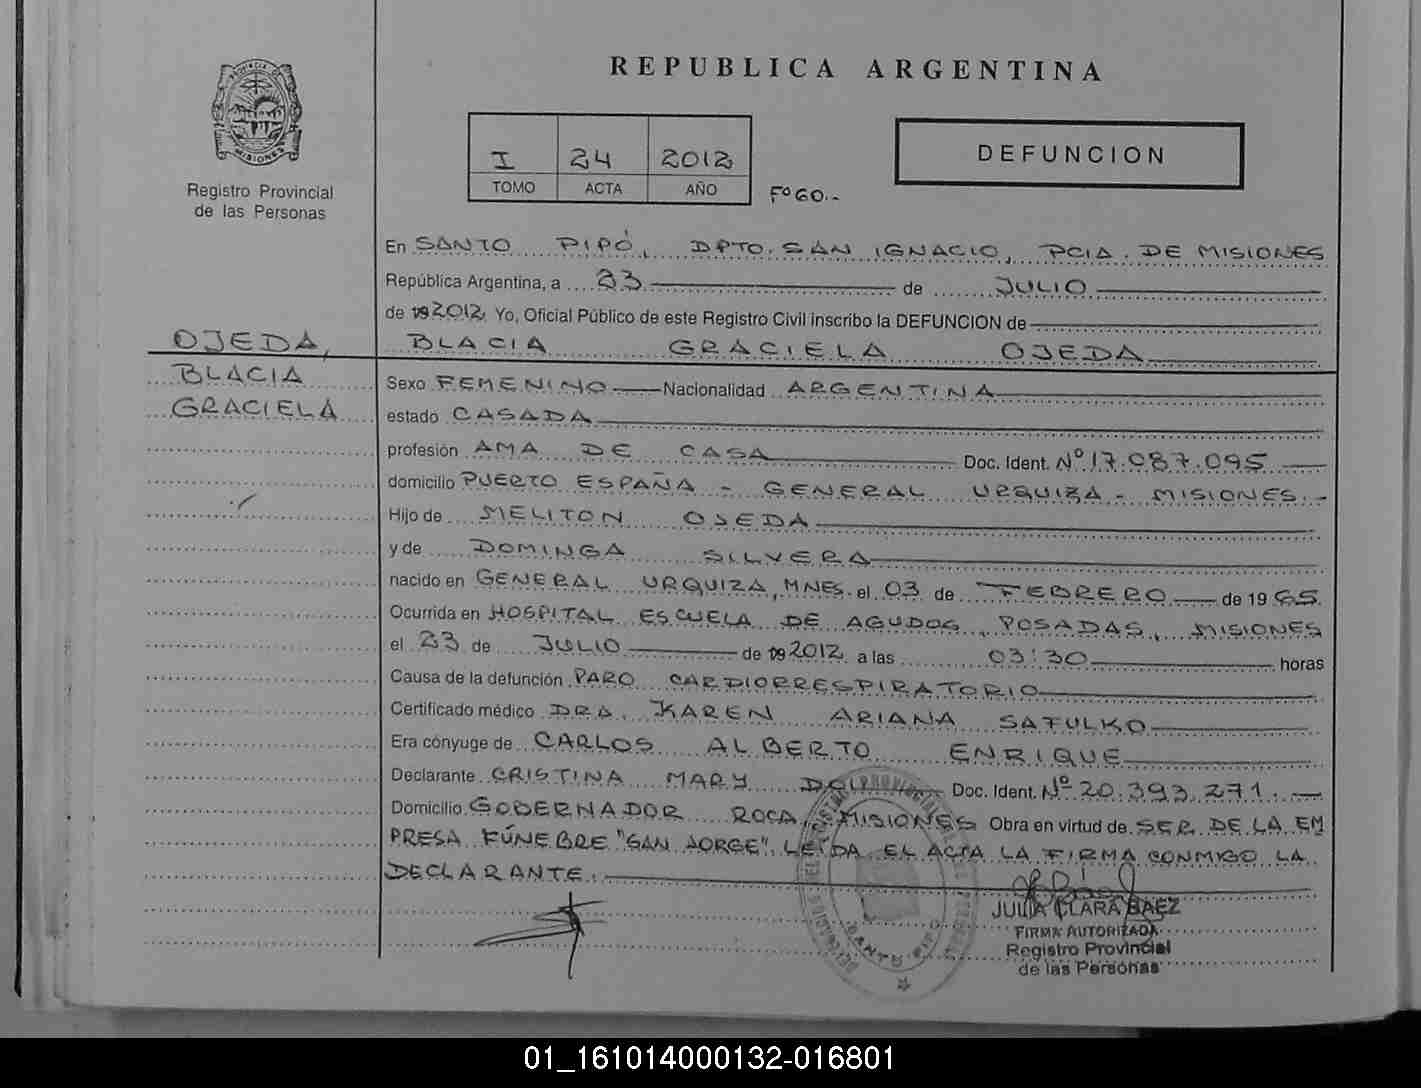 REPUBLICA ARGENTINA
PROVINCIA DE
MISIONES
Registro Provincial
de las Personas
I 24 2012
TOMO ACTA AÑO
Fº 60.-
DEFUNCION
En SANTO PIPÓ, DPTO. SAN IGNACIO, PCIA. DE MISIONES
República Argentina, a 23 de JULIO
de 19 2012. Yo, Oficial Público de este Registro Civil inscribo la DEFUNCION de
OJEDA, BLACIA GRACIELA OJEDA
BLACIA
GRACIELA
Sexo FEMENINO Nacionalidad ARGENTINA
estado CASADA
profesión AMA DE CASA Doc. Ident. Nº 17.087.095
domicilio PUERTO ESPAÑA - GENERAL URQUIZA - MISIONES.-
Hijo de MELITON OJEDA
y de DOMINGA SILVERA
nacido en GENERAL URQUIZA, MNES. el 03 de FEBRERO de 1965.
Ocurrida en HOSPITAL ESCUELA DE AGUDOS, POSADAS, MISIONES
el 23 de JULIO de 19 2012 a las 03:30 horas
Causa de la defunción PARO CARDIORRESPIRATORIO
Certificado médico DRA. KAREN ARIANA SAFULKO
Era cónyuge de CARLOS ALBERTO ENRIQUE
Declarante CRISTINA MARY Doc. Ident. Nº 20.393.271.
Domicilio GOBERNADOR ROCA, MISIONES Obra en virtud de SER DE LA EM
PRESA FÚNEBRE "SAN JORGE". LEÍDA EL ACTA LA FIRMA CONMIGO LA
DECLARANTE.
SANTO PIPO
JULIA CLARA BAEZ
FIRMA AUTORIZADA
Registro Provincial
de las Personas
01_161014000132-016801